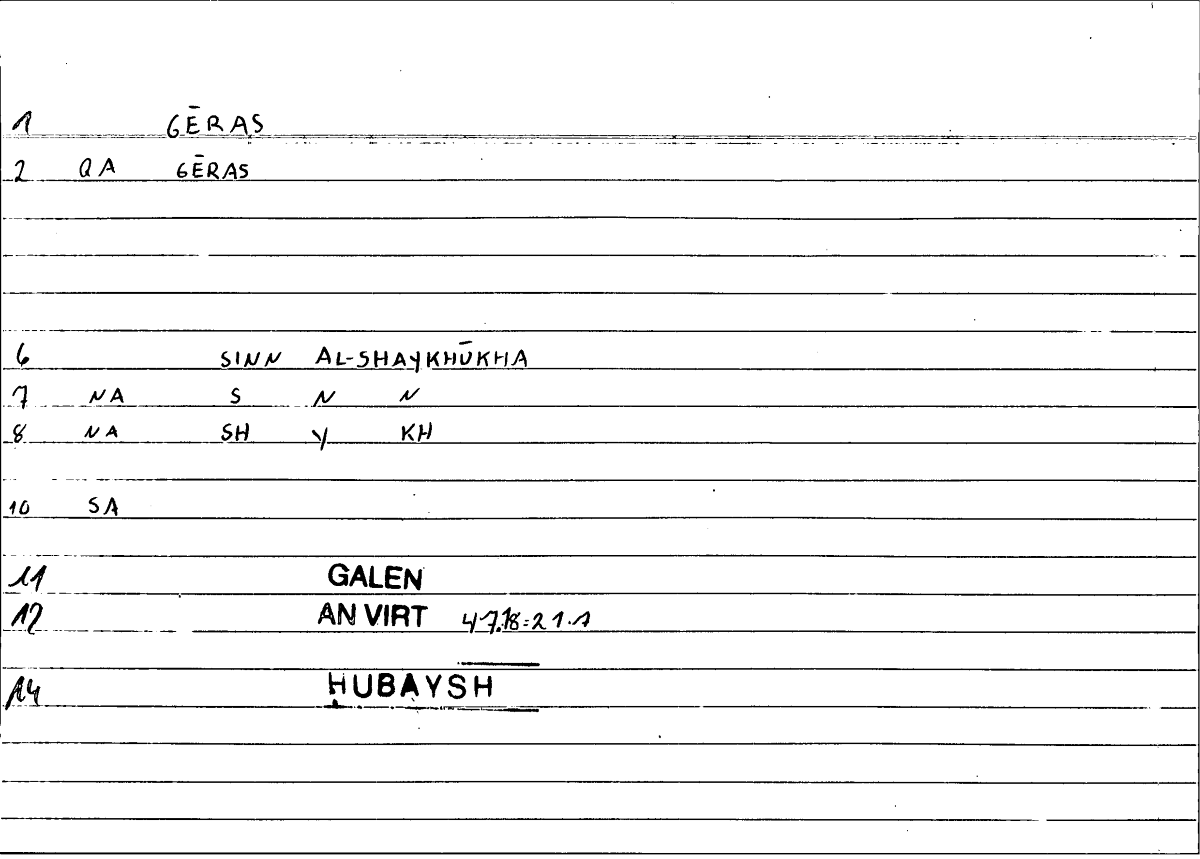 1 GĒRAS
2 QA GĒRAS
6 SINN AL-SHAYKHŪKHA
7 NA S N N
8 NA SH Y KH
10 SA
11 GALEN
12 AN VIRT 47.18=21.1
14 ḤUBAYSH